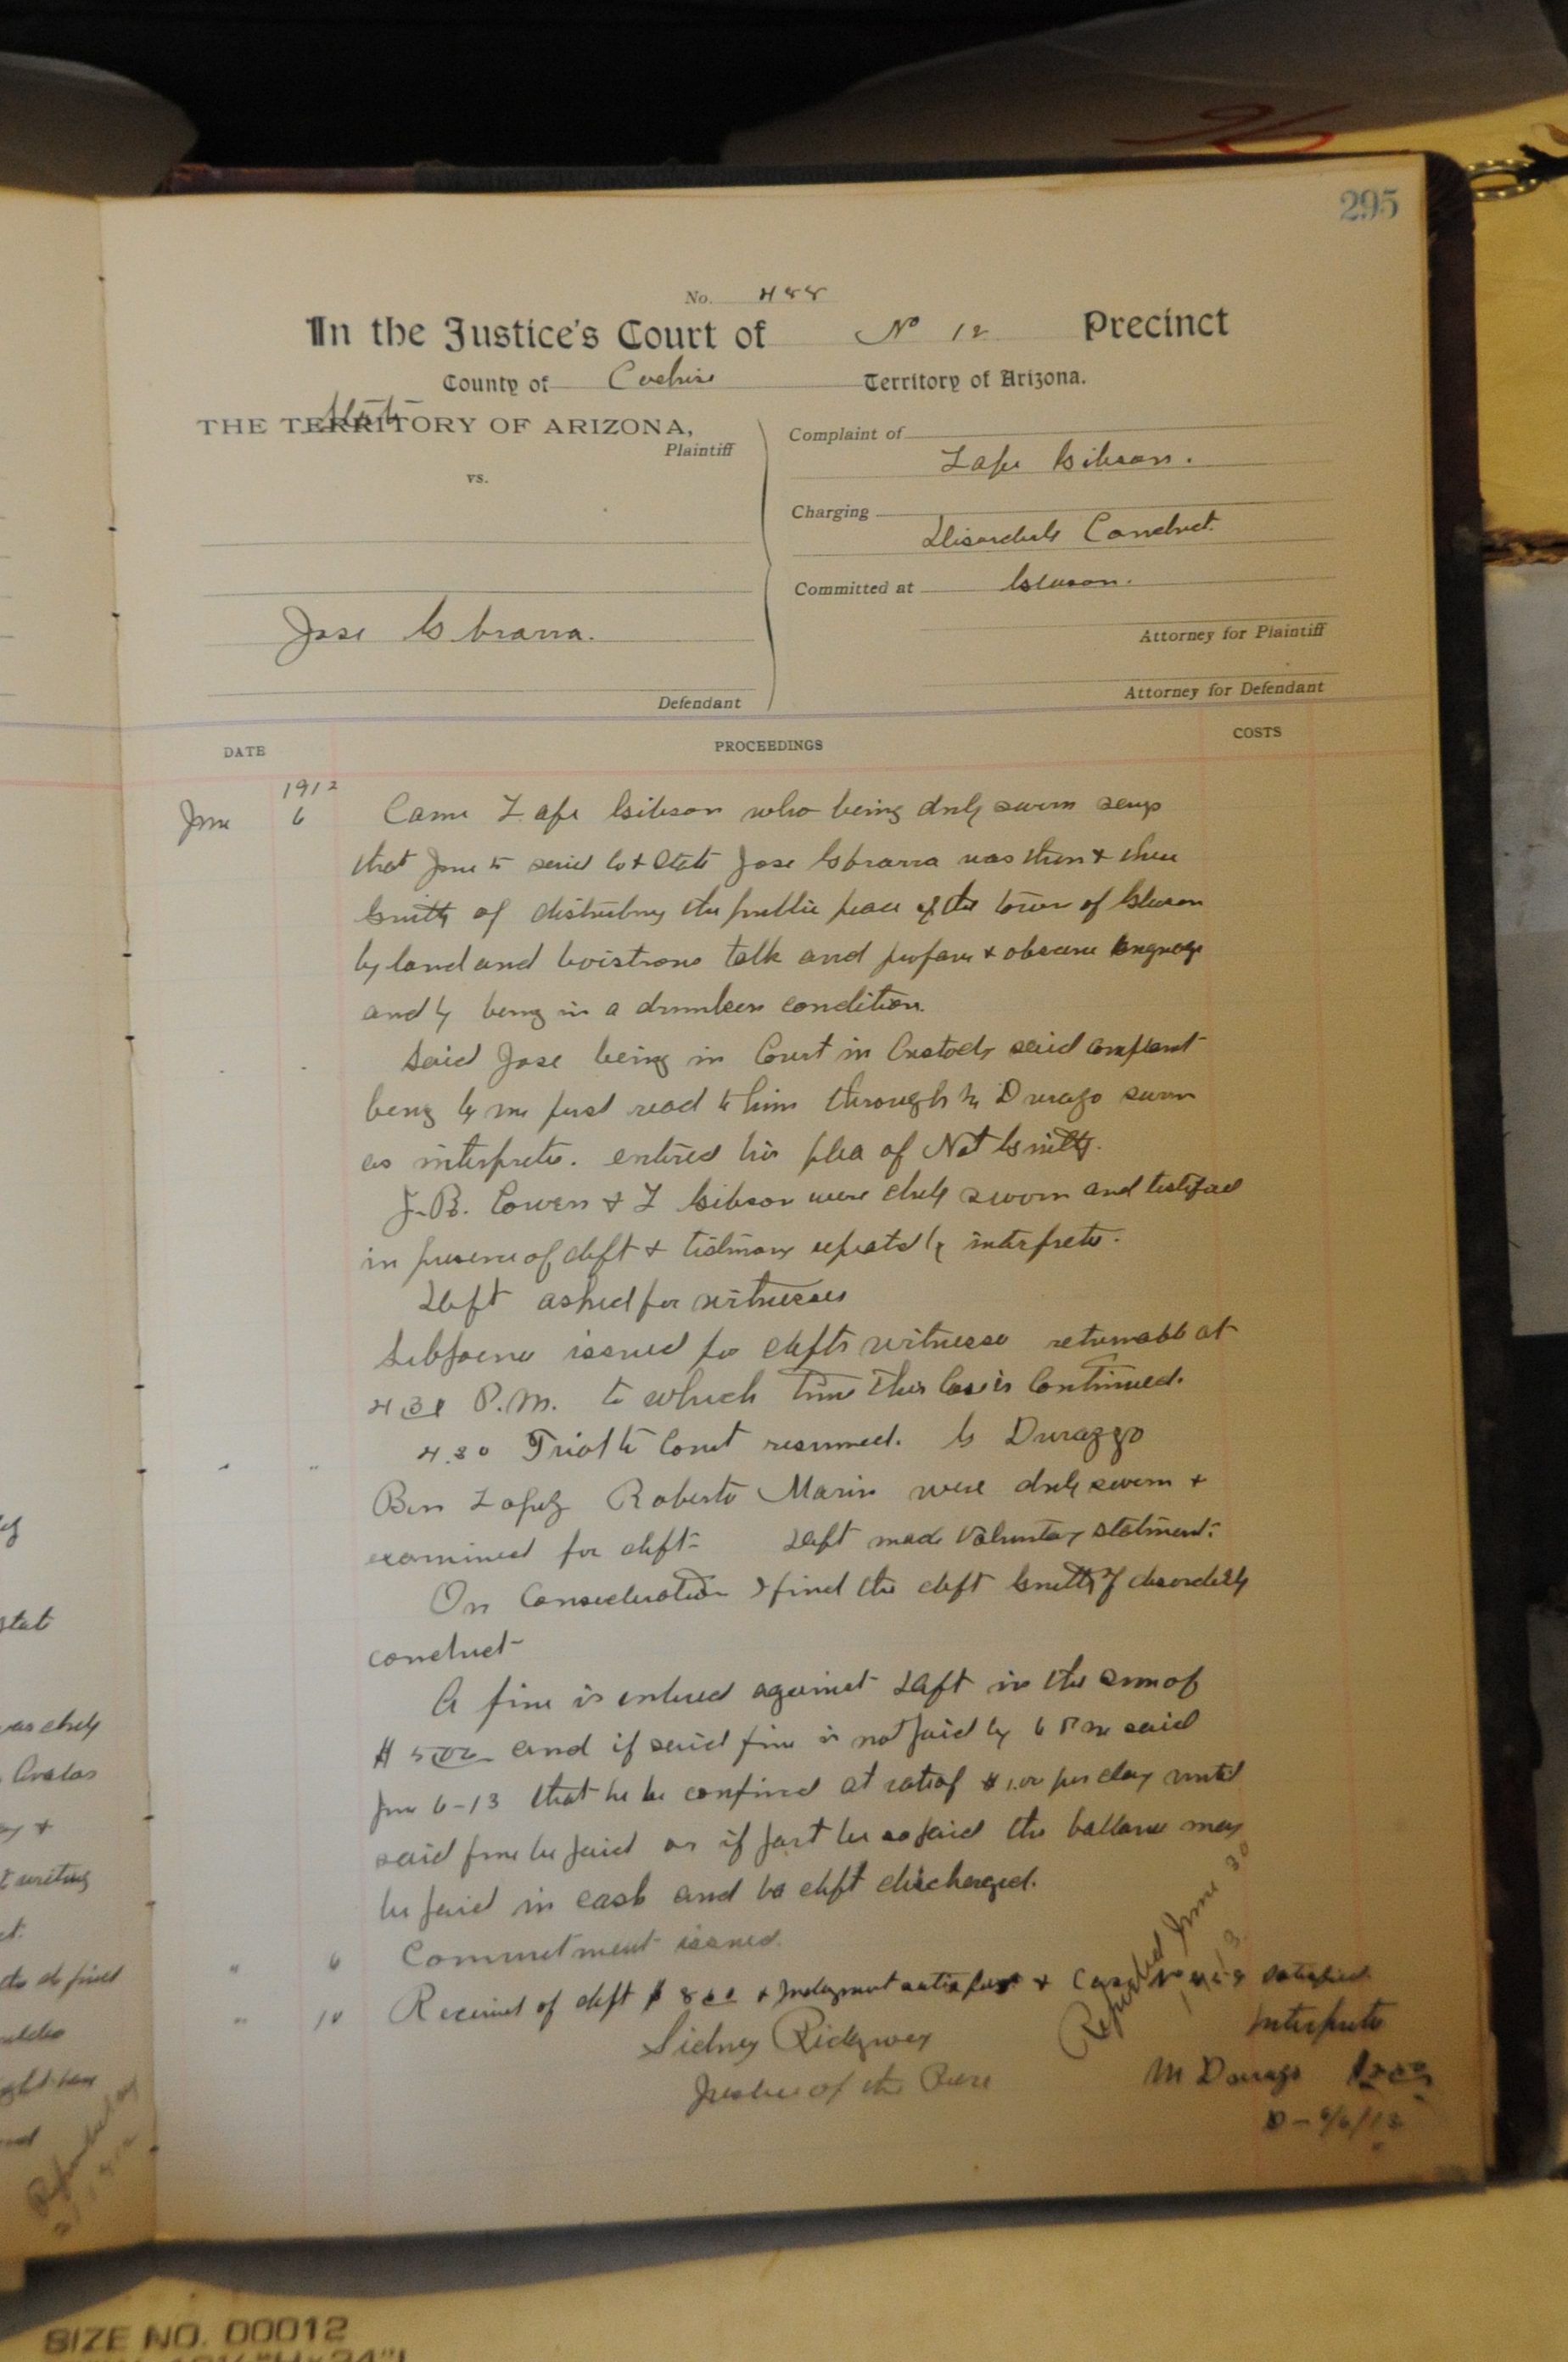 295
No. 488
In the Justice's Court of No 12 Precinct
County of Cochise Territory of Arizona.
State
THE TERRITORY OF ARIZONA,
Plaintiff
vs.
Jose G Ibrarra.
Defendant
Complaint of
Lafe Gibson.
Charging
Disorderly Conduct.
Committed at Gleeson.
Attorney for Plaintiff
Attorney for Defendant
DATE PROCEEDINGS COSTS
1912
June 6 Came Lafe Gibson who being duly sworn says
that June 5 said Co & State Jose Ibrarra was then & there
Guilty of disturbing the public peace of the town of Gleeson
by loud and boistrous talk and profane & obscene language
and by being in a drunken condition.
Said Jose being in Court in Custody said complaint
being by me first read to him through M Durazo sworn
as interpreter. entered his plea of Not Guilty.
J.B. Cowen & L Gibson were duly sworn and testified
in presence of deft & testimony repeated by interpreter.
Deft asked for witnesses
Subpoena issued for defts witnesses returnable at
4 30 P.M. to which time this Case is Continued.
" " 4.30 Trial Court resumed. G Durazzo
Ben Lopez Roberto Marin were duly sworn &
examined for deft- Deft made Voluntary statment.
On Consideration I find the deft Guilty of disorderly
conduct-
A fine is entered against Deft in the sum of
$ 5 00 and if said fine is not paid by 6 P m said
June 6-13 that he be confined at rate of $1.00 per day until
said fine be paid or if part be so paid the ballance may
be paid in cash and deft discharged.
" 6 Commitment issued.
" 10 Received of deft $ 8 00 & Judgment satisfied & Case No satisfied
Sidney Ridgway
Justice of the Peace
Reported June 30
Interpreter
M Durazo
stat
was duly
&
writing
SIZE NO. 00012